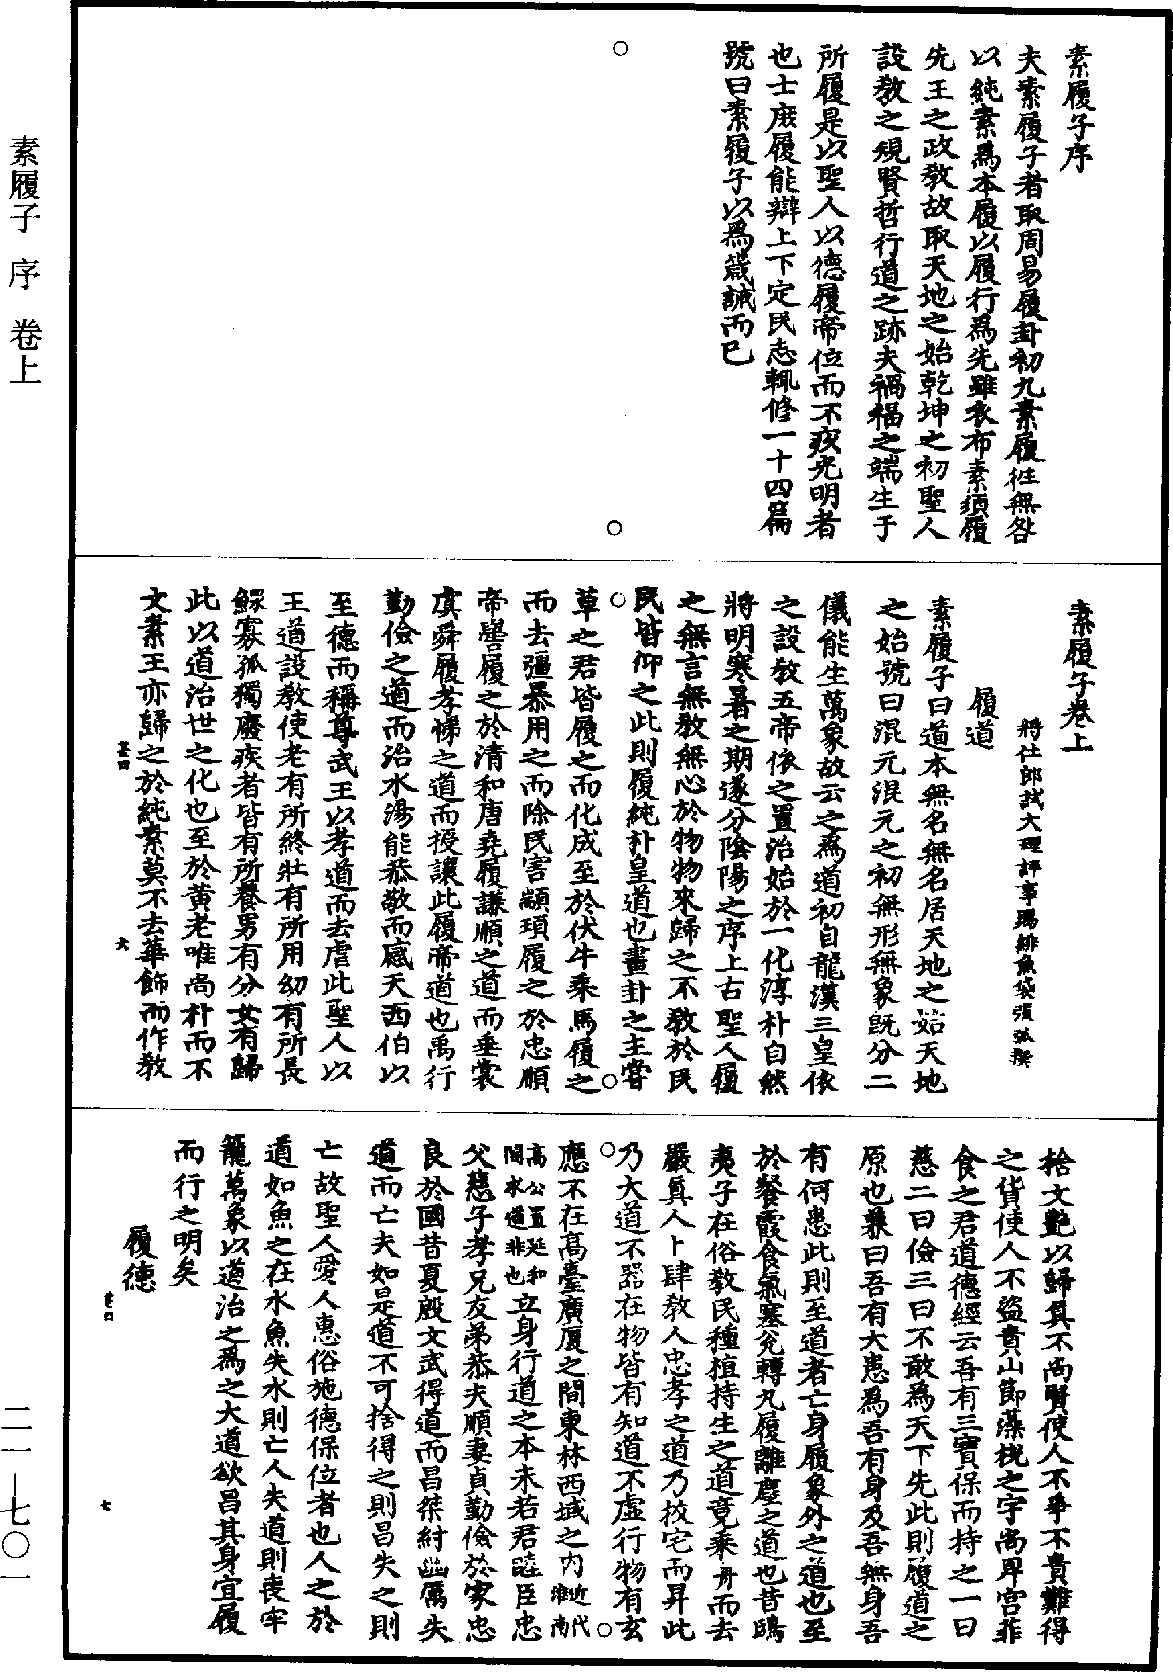 素履子序
夫素履子者取周易履卦初九素履徃無咎
以純素爲本履以履行爲先雖衣布素須履
先王之政教故取天地之始乾坤之初聖人
設教之規賢哲行道之跡夫禍福之端生于
所履是以聖人以德履帝位而不疚光明者
也士庶履能辯上下定民志輒修一十四篇
號曰素履子以爲箴誡而已
素履子卷上
將仕郎試大理評事賜緋魚袋張弧撰
履道
素履子曰道本無名無名居天地之始天地
之始號曰混元混元之初無形無象既分二
儀能生萬象故云之爲道初自龍漢三皇依
之設教五帝依之置治始於一化淳朴自然
將明寒暑之期遂分陰陽之序上古聖人履
之無言無教無心於物物來歸之不教於民
民皆仰之此則履純朴皇道也畫卦之主嘗
草之君皆履之而化成至於伏牛乘馬履之
而去彊暴用之而除民害顓頊履之於忠順
帝嚳履之於清和唐堯履謙順之道而垂裳
虞舜履孝悌之道而授讓此履帝道也禹行
勤儉之道而治水湯能恭敬而感天西伯以
至德而稱尊武王以孝道而去虐此聖人以
王道設教使老有所終壯有所用幼有所長
鰥寡孤獨廢疾者皆有所養男有分女有歸
此以道治世之化也至於黃老唯尚朴而不
文素王亦歸之於純素莫不去華飾而作教
甚四
六
捨文艷以歸真不尚賢使人不爭不貴難得
之貨使人不盜責山節藻梲之字尚卑宮菲
食之君道德經云吾有三寶保而持之一曰
慈二曰儉三曰不敢為天下先此則履道之
原也兼曰吾有大患為吾有身及吾無身吾
有何患此則至道者亡身履象外之道也至
於餐霞食氣塞兌轉丸履離塵之道也昔鴟
夷子在俗教民種植持生之道竟乘舟而去
嚴真人卜肆教人忠孝之道乃拔宅而昇此
乃大道不器在物皆有知道不虛行物有玄
應不在高臺廣厦之間東林西域之内近代淮南
高公置延和閣求道非也立身行道之本未若君睦臣忠
父慈子孝兄友弟恭夫順妻貞勤儉於家忠
良於國昔夏殷文武得道而昌桀紂幽厲失
道而亡夫如是道不可捨得之則昌失之則
亡故聖人愛人惠俗施德保位者也人之於
道如魚之在水魚失水則亡人失道則喪牢
籠萬象以道治之爲之大道欲昌其身宜履
而行之明矣
履德
甚四
七
素履子 序 卷上
二一—七〇一